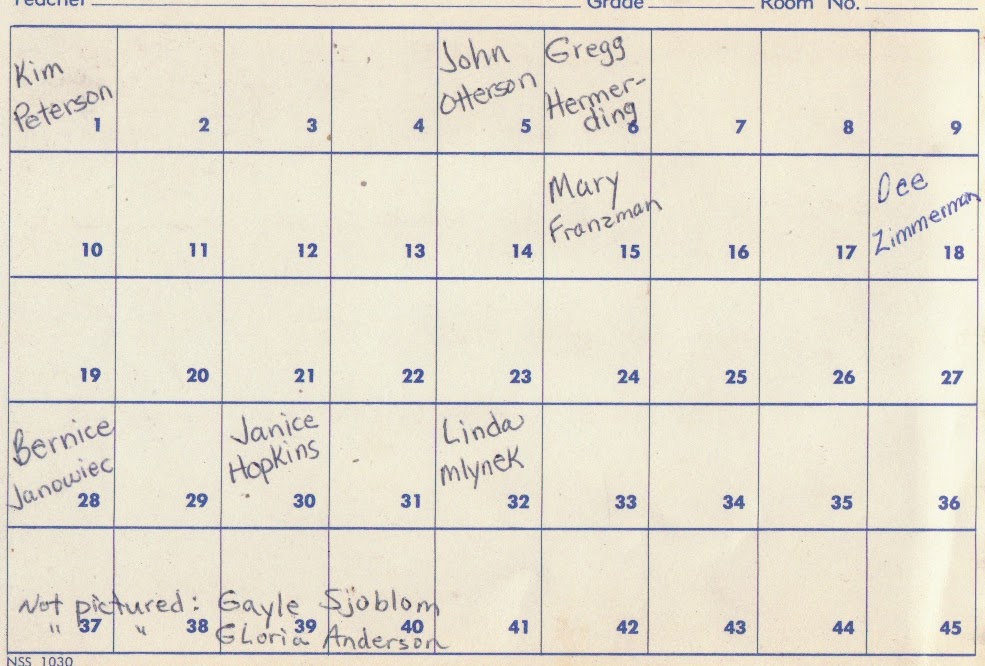 Teacher Grade Room No.
Kim
Peterson
1 2 3 4
John
Otterson
5
Gregg
Hermer-
ding
6 7 8 9
10 11 12 13 14
Mary
Franzman
15 16 17
Dee
Zimmerman
18
19 20 21 22 23 24 25 26 27
Bernice
Janowiec
28 29
Janice
Hopkins
30 31
Linda
Mlynek
32 33 34 35 36
Not pictured: Gayle Sjoblom
" " Gloria Anderson
37 38 39 40 41 42 43 44 45
NSS 1030